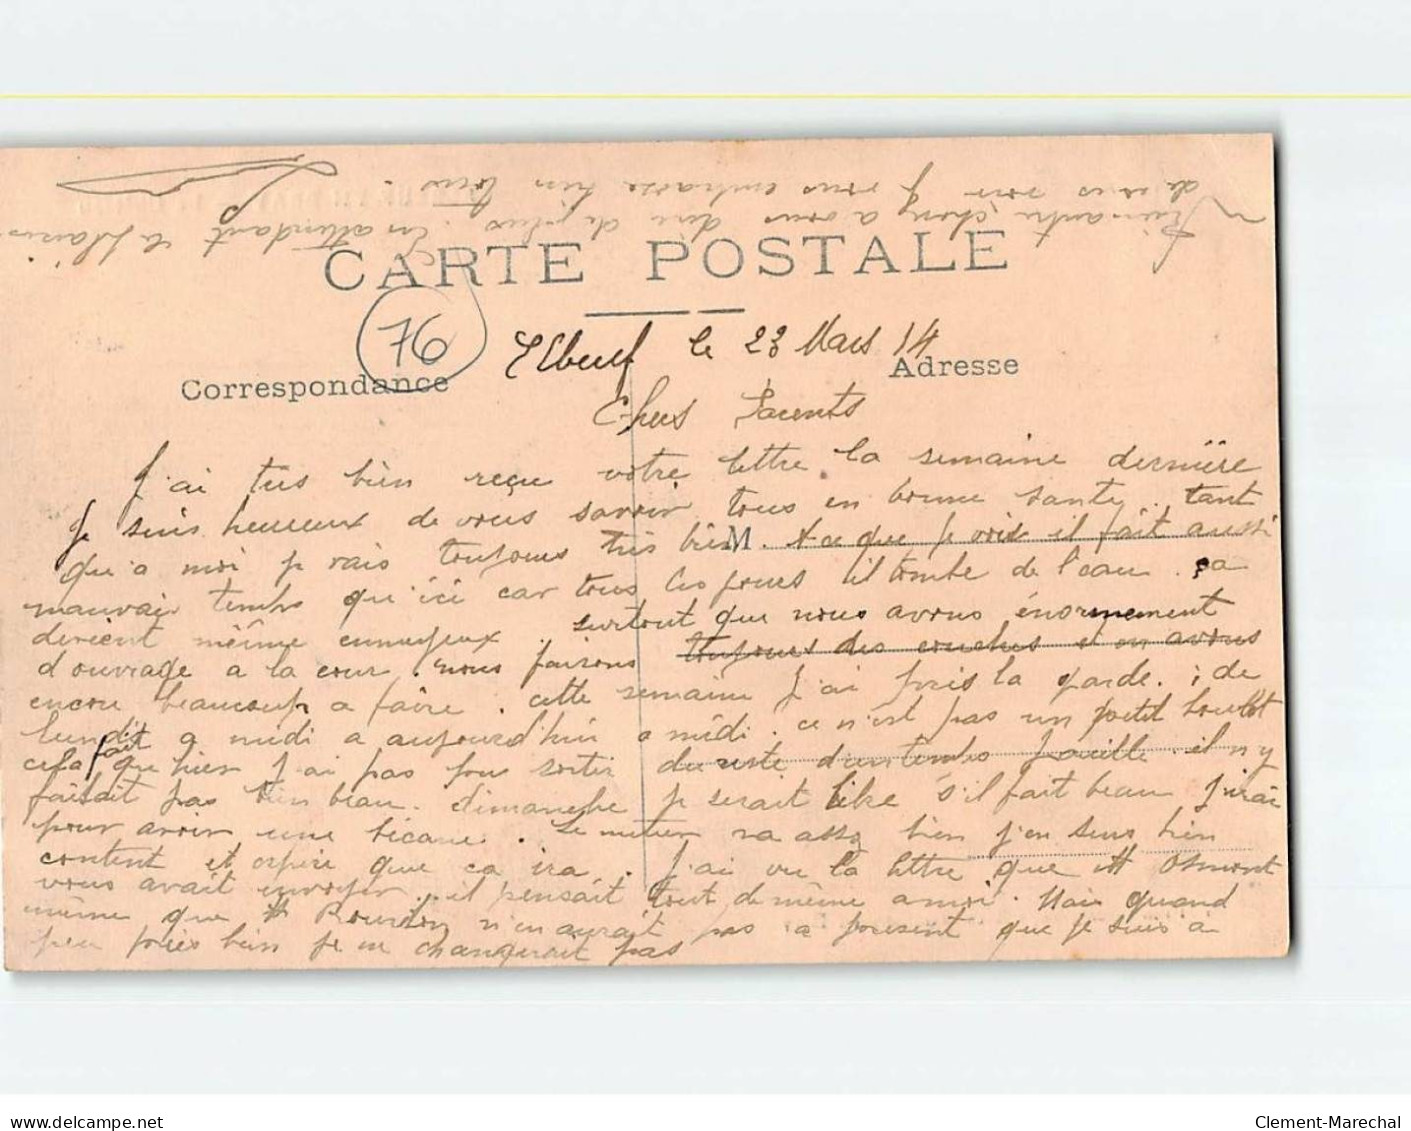 CARTE POSTALE
76
Elbeuf le 23 Mars 14
Correspondance
Adresse
Chers Parents
J'ai très bien reçu votre lettre la semaine dernière
Je suis heureux de vous savoir tous en bonne santé. tant
qu'a moi je vais toujours très bien. A ce que je vois il fait aussi
M
mauvais temps qu'ici car tous les jours il tombe de l'eau. ça
devient même ennuyeux. surtout que nous avons énormement
d'ouvrage a la cour. nous faisons toujours des couches et en avons
encore beaucoup a faire. cette semaine j'ai pris la garde. de
lundi a midi a aujourd'hui a midi. ce n'est pas un petit boulot
cela fait que hier j'ai pas pu sortir du reste d'un temps pareille il n'y
faisait pas bien beau. dimanche je serait libre s'il fait beau j'irai
pour avoir une bécane. Le métier va assez bien j'en suis bien
content et espère que ça ira. J'ai vu la lettre que M Osmont
vous avait envoyer. il pensait tout de même a moi. Mais quand
même que M Bourdon n'en aurait pas a present que je suis à
peu près bien je ne changerait pas
Rien autre chose a vous dire de plus. En attendant le plaisir
de vous voir je vous embrasse bien tous.
Clement-Marechal
www.delcampe.net